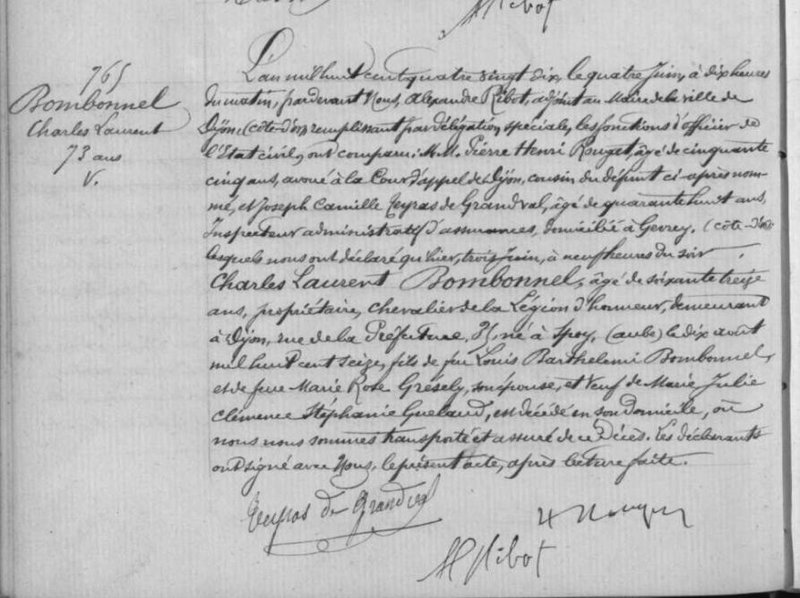 A Ribot
765
Bombonnel
Charles Laurent
73 ans
V.
L'an mil huit cent quatre vingt dix, le quatre Juin, à dix heures
du matin, pardevant Nous, Alexandre Ribot, adjoint au Maire de la ville de
Dijon, (côte-d'or) remplissant par délégation spéciale, les fonctions d'officier de
l'Etat civil, ont comparu: M.M. Pierre Henri Rouget, âgé de cinquante
cinq ans, avoué à la Cour d'appel de Dijon, cousin du défunt ci-après nom-
mé, et Joseph Camille Teyras de Grandval, âgé de quarante huit ans,
Inspecteur administratif d'assurances, domicilié à Gevrey, (côte-d'or)
lesquels nous ont déclaré qu'hier, trois Juin, à neuf heures du soir,
Charles Laurent Bombonnel, âgé de soixante treize
ans, propriétaire, Chevalier de la Légion d'honneur, demeurant
à Dijon, rue de la Préfecture, 31, né à Spoy, (aube) le dix août
mil huit cent seize, fils de feu Louis Barthelemi Bombonnel,
et de feue Marie Rose Grésely, son épouse, et Veuf de Marie Julie
Clémence Stéphanie Guelaud, est décédé en son domicile, où
nous nous sommes transporté et assuré de ce Décès. Les déclarants
ont signé avec Nous, le présent acte, après lecture faite.
Teyras de Grandval
H Rouget
A Ribot